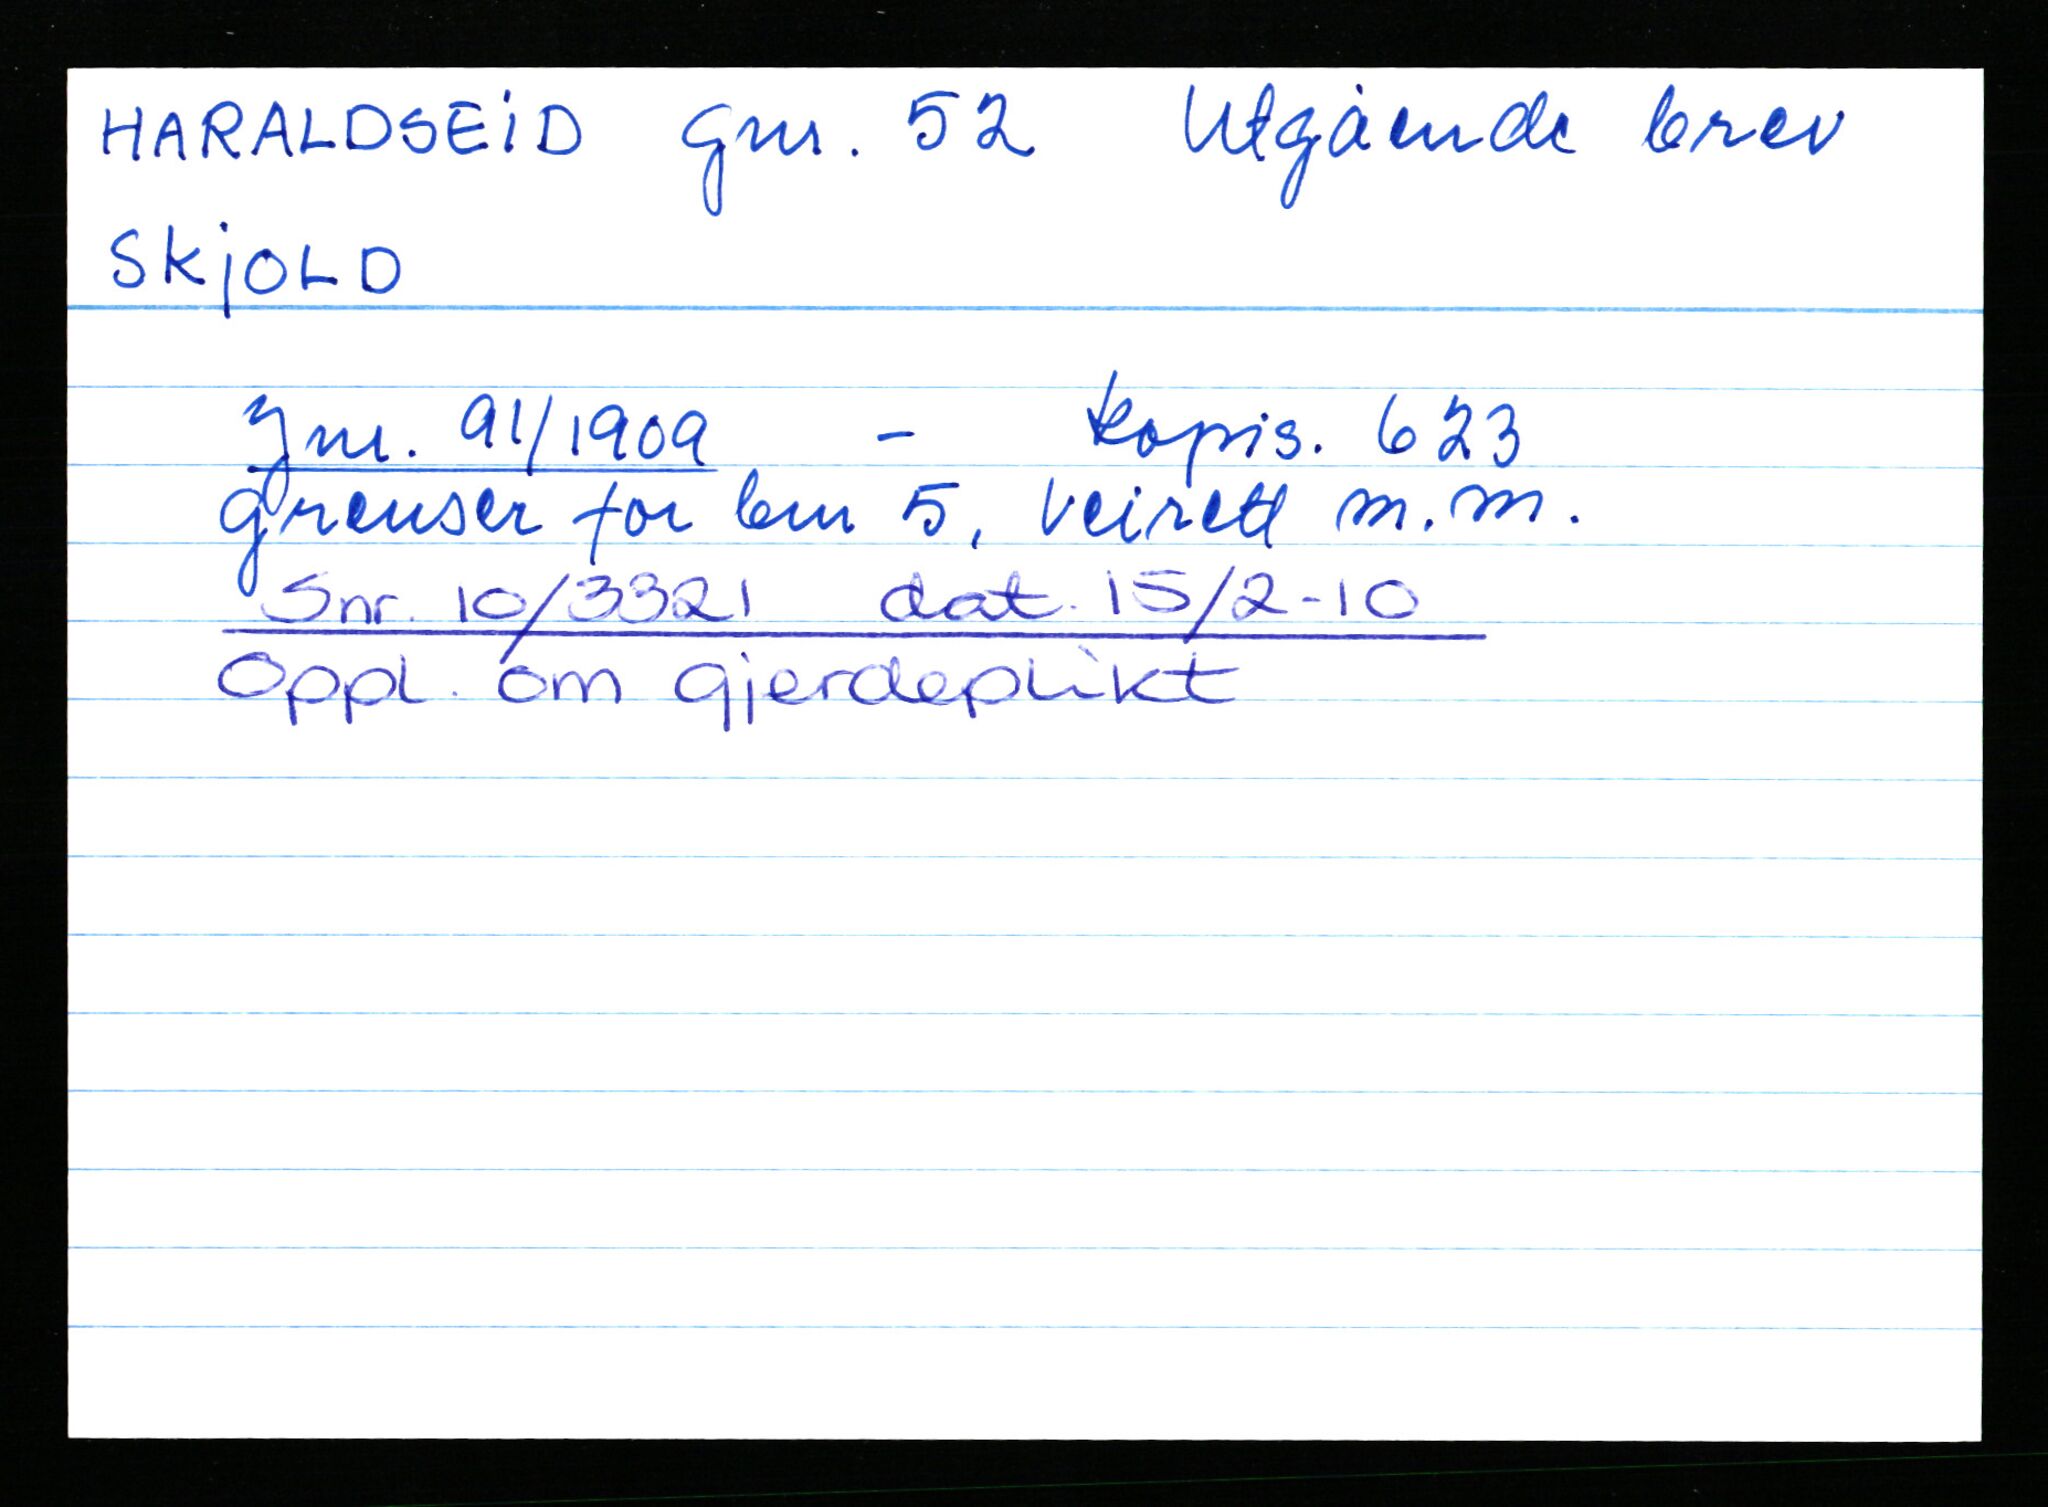 HARALDSEID gnr. 52 Utgående brev
SKjOLD
Jnr. 91/1909 - kopis. 623
grenser for bnr 5, veirett m.m.
Snr. 10/3321 dat. 15/2-10
Oppl. om gjerdeplikt